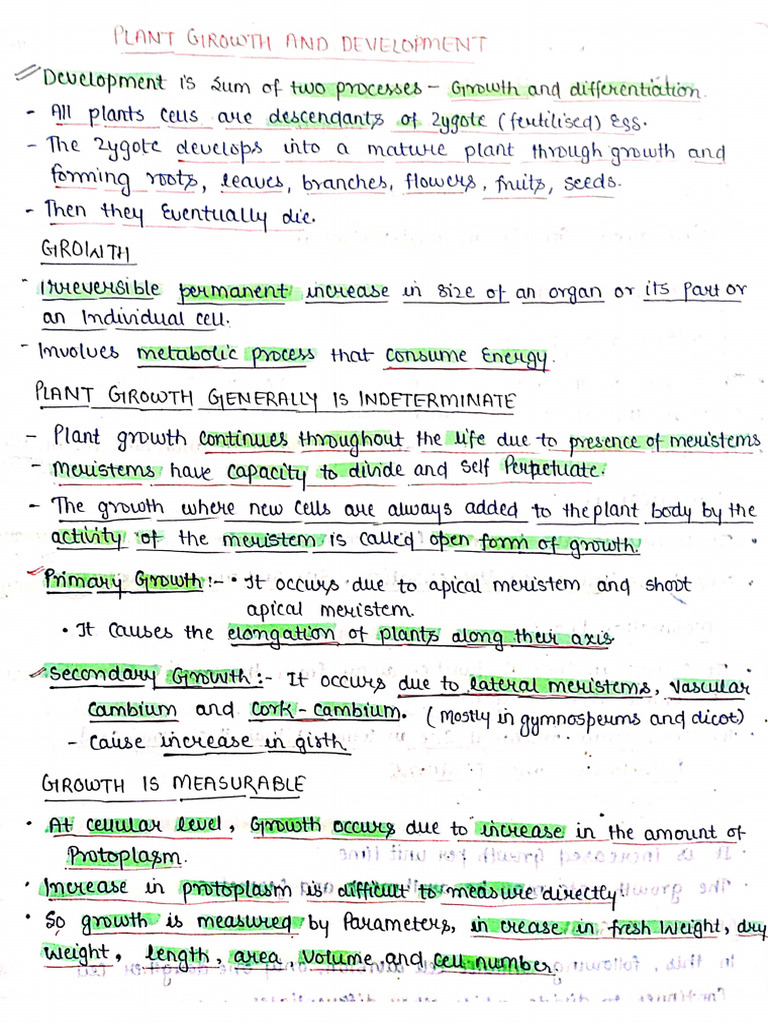 PLANT GROWTH AND DEVELOPMENT
Development is sum of two processes - Growth and differentiation.
- All plants cells are descendants of zygote (fertilised) Egg.
- The zygote develops into a mature plant through growth and
forming roots, leaves, branches, flowers, fruits, seeds.
- Then they Eventually die.
GROWTH
- Irreversible permanent increase in size of an organ or its part or
an Individual cell.
- Involves metabolic process that consume Energy.
PLANT GROWTH GENERALLY IS INDETERMINATE
- Plant growth continues throughout the life due to presence of meristems
- Meristems have capacity to divide and self Perpetuate.
- The growth where new cells are always added to the plant body by the
activity of the meristem is called open form of growth.
Primary Growth :- • It occurs due to apical meristem and shoot
apical meristem.
• It causes the elongation of plants along their axis
Secondary Growth :- It occurs due to lateral meristems, vascular
cambium and cork-cambium. (Mostly in gymnosperms and dicot)
- cause increase in girth
GROWTH IS MEASURABLE
• At cellular level, Growth occurs due to increase in the amount of
Protoplasm.
• Increase in protoplasm is difficult to measure directly.
• So growth is measured by Parameters, in crease in fresh weight, dry
weight, length, area, volume and cell number.